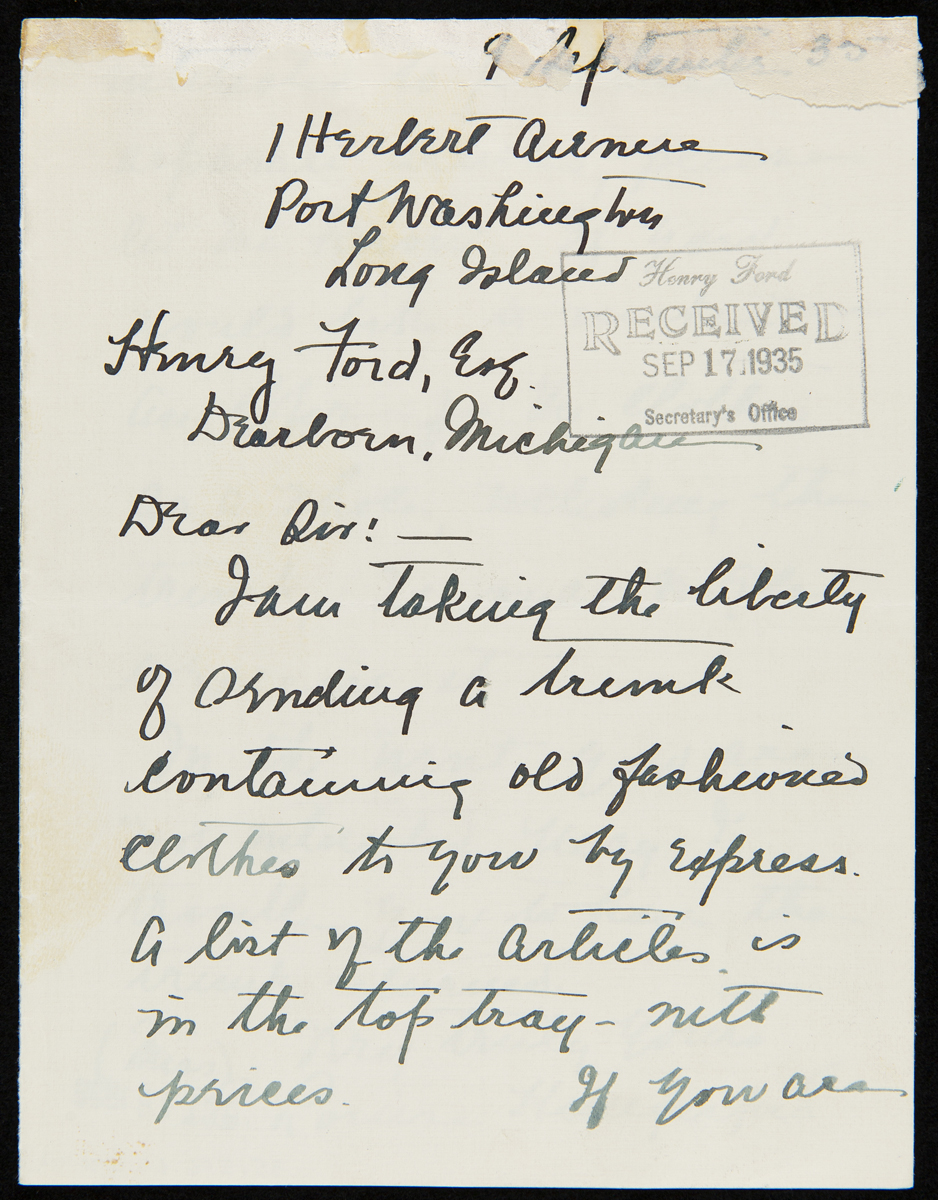 9 September 35
1 Herbert Avenue
Port Washington
Long Island
Henry Ford
RECEIVED
SEP 17 1935
Secretary's Office
Henry Ford, Esq.
Dearborn, Michigan
Dear Sir! —
I am taking the liberty
of sending a trunk
containing old fashioned
clothes to you by express.
A list of the articles is
in the top tray - with
prices. If you are